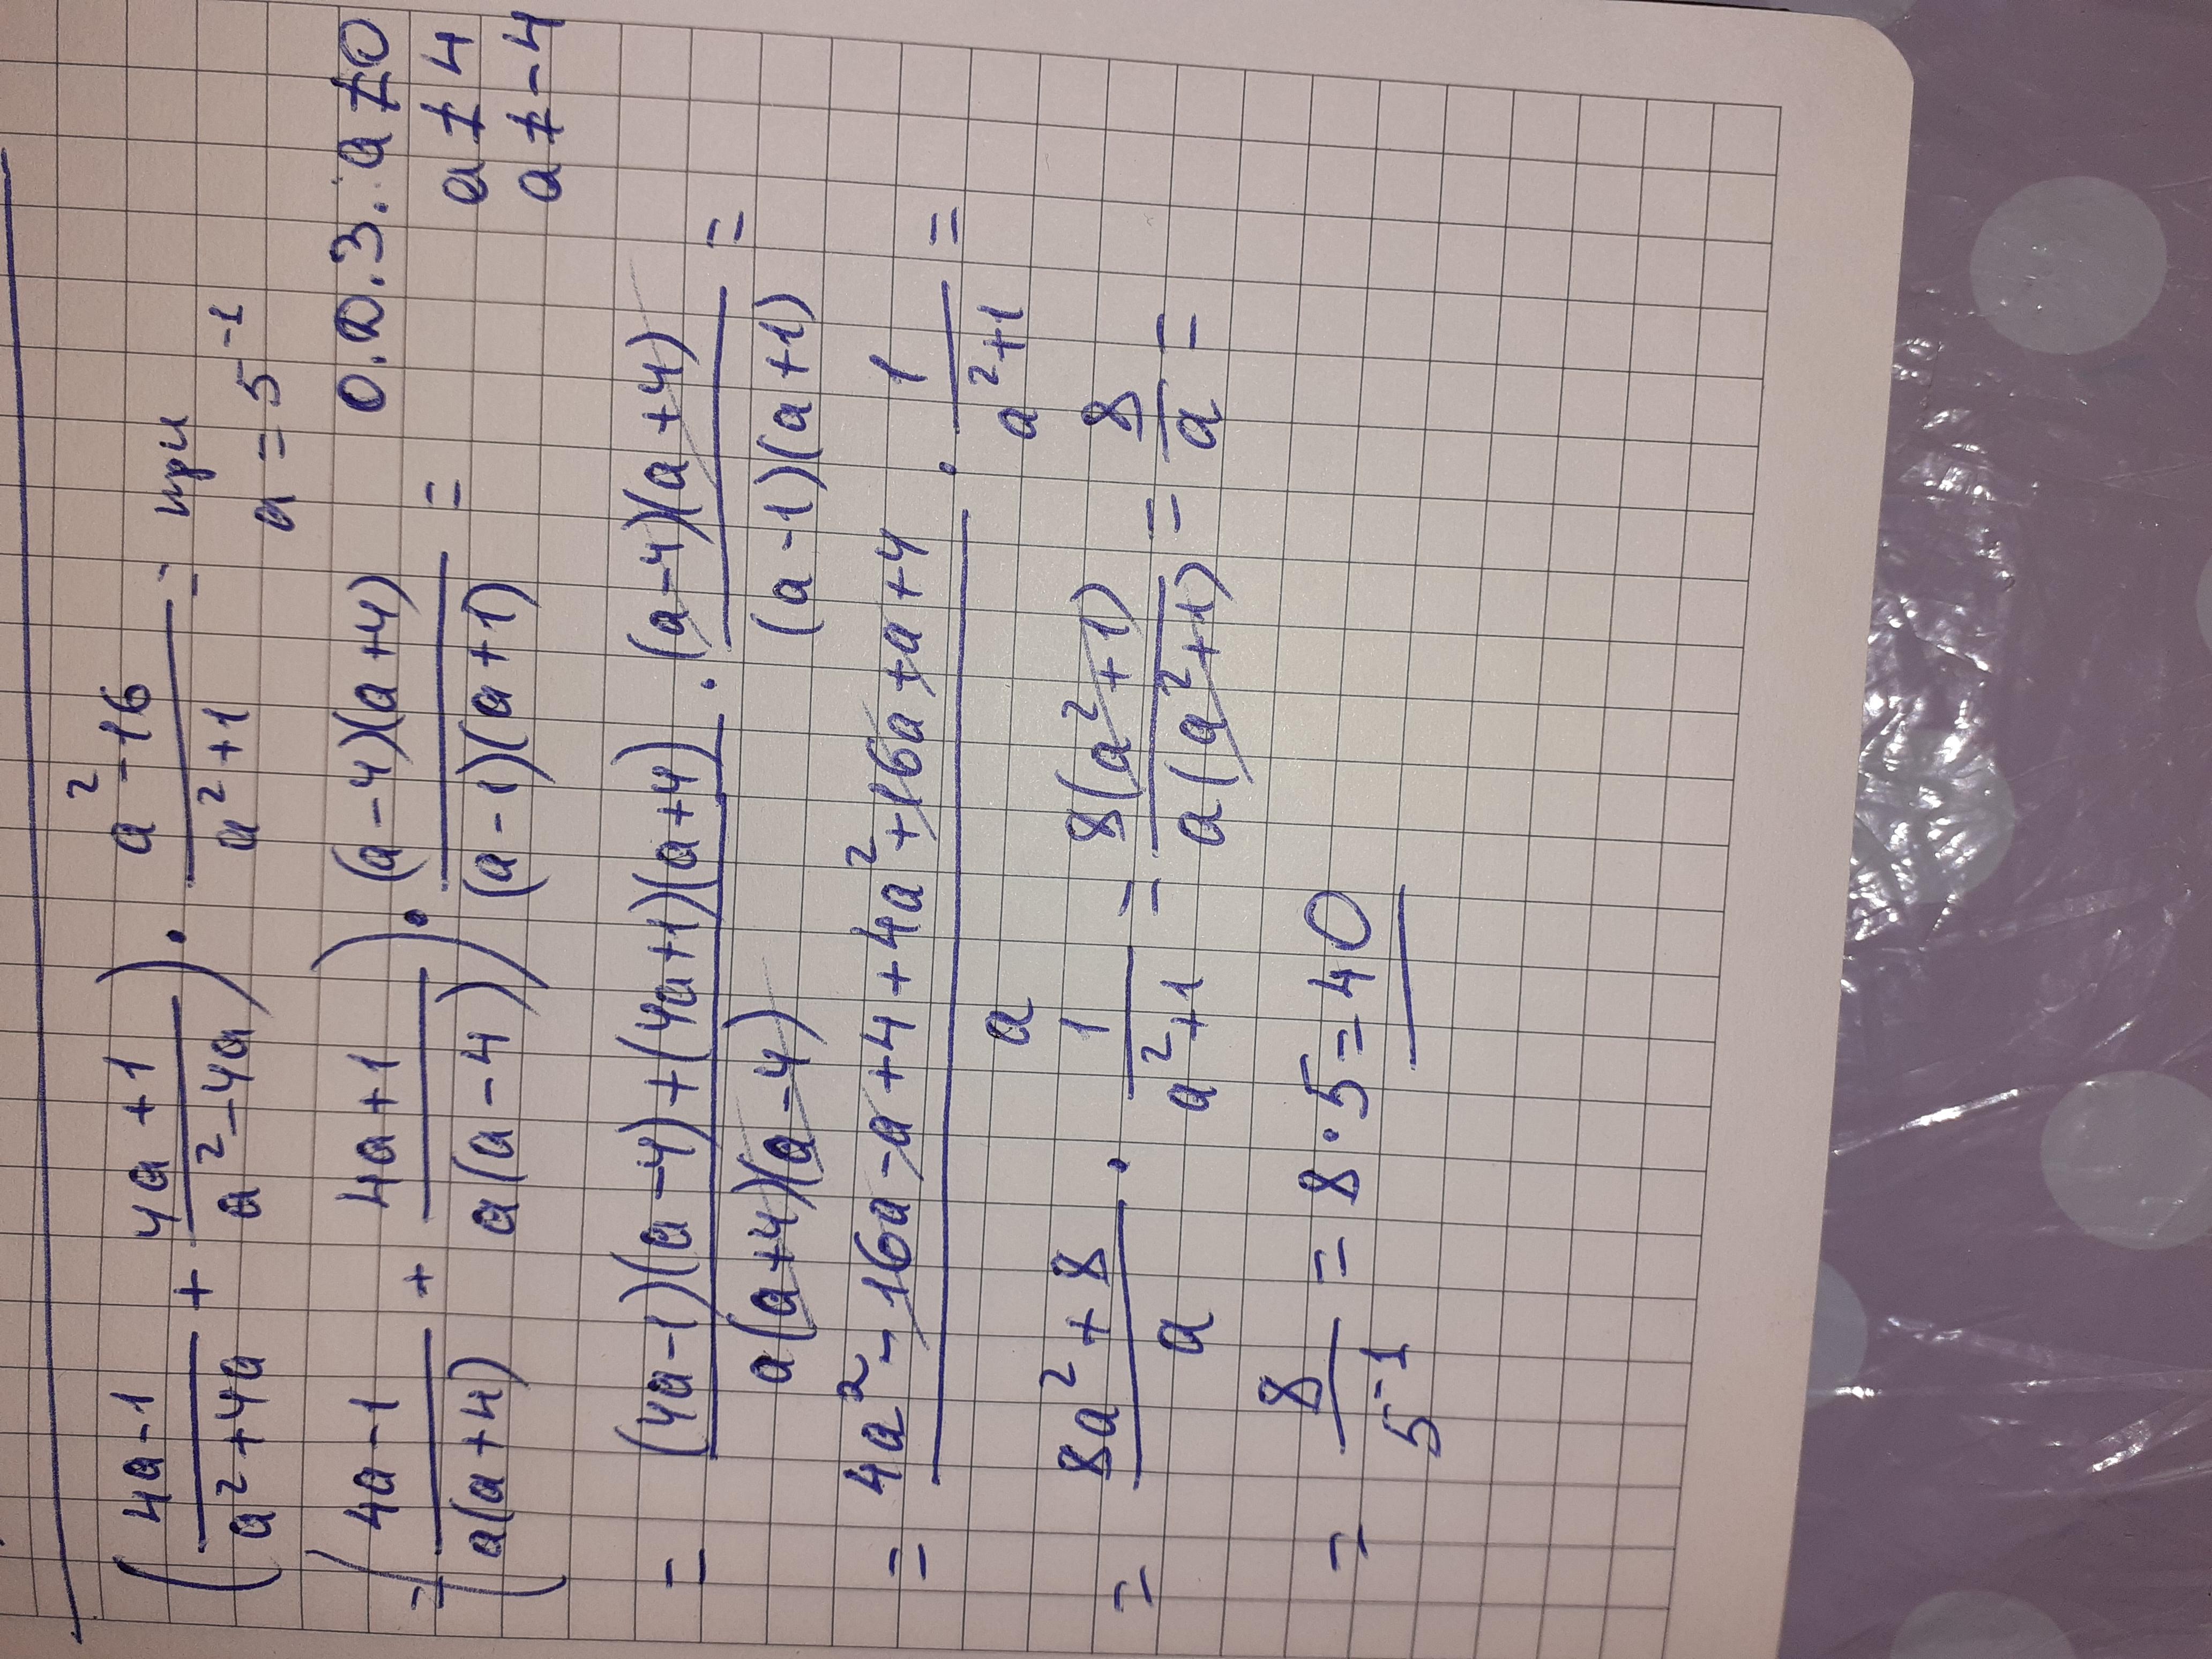 (4a-1)/(a²+4a) + (4a+1)/(a²-4a)) · (a²-16)/(a²+1) = при
a = 5⁻¹
=((4a-1)/(a(a+4)) + (4a+1)/(a(a-4))) · ((a-4)(a+4))/((a-1)(a+1)) = О.Д.З. a≠0
a≠4
a≠-4
= ((4a-1)(a-4)+(4a+1)(a+4))/(a(a+4)(a-4)) · ((a-4)(a+4))/((a-1)(a+1)) =
= (4a²-16a-a+4+4a²+16a+a+4)/a · 1/(a²+1) =
= (8a²+8)/a · 1/(a²+1) = (8(a²+1))/(a(a²+1)) = 8/a =
= 8/5⁻¹ = 8·5=40